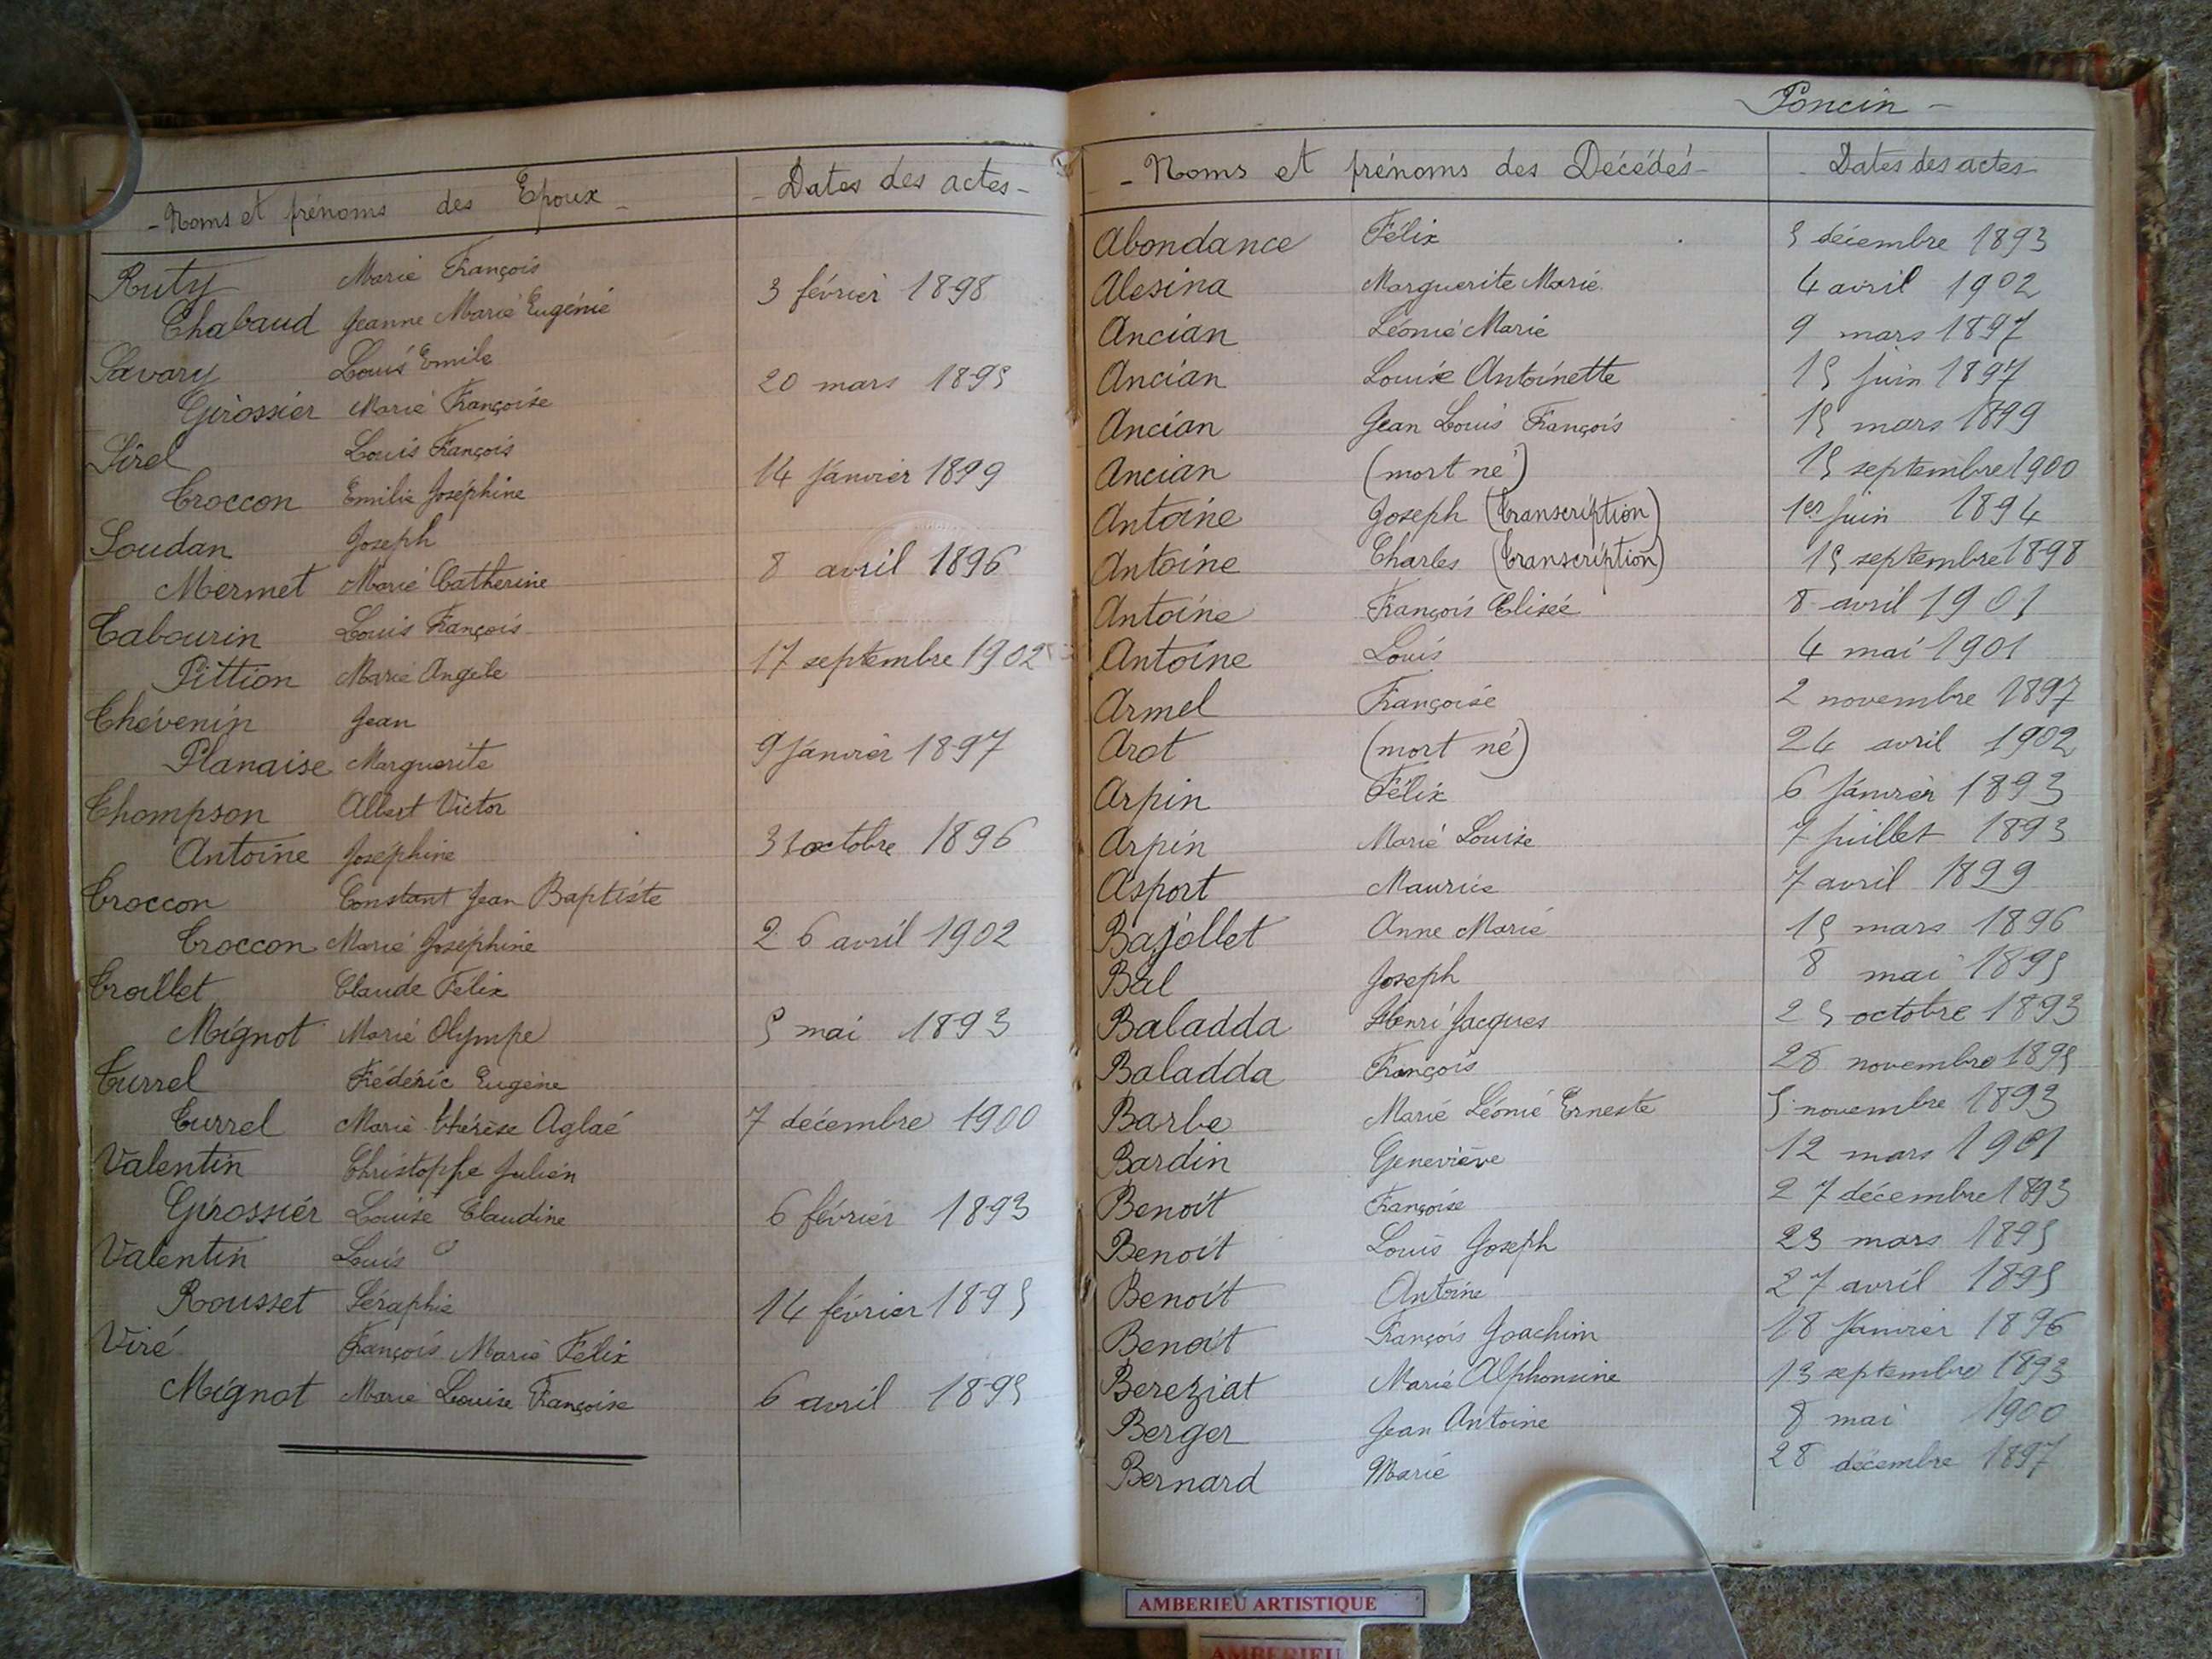 - Noms et prénoms des Epoux - - Dates des actes -
Ruty Marie François
3 février 1898
Chabaud Jeanne Marie Eugénie
Savary Louis Emile
20 mars 1895
Girossier Marie Françoise
Sirel Louis François
14 Janvier 1899
Troccon Emilie Joséphine
Soudan Joseph
8 avril 1896
Mermet Marie Catherine
Tabourin Louis François
17 septembre 1902
Pittion Marie Angèle
Thévenin Jean
9 Janvier 1897
Planaise Marguerite
Thompson Albert Victor
31 octobre 1896
Antoine Joséphine
Troccon Constant Jean Baptiste
26 avril 1902
Troccon Marie Joséphine
Trollet Claude Félix
5 mai 1893
Mignot Marie Olympe
Turrel Frédéric Eugène
7 décembre 1900
Turrel Marie Thérèse Aglaé
Valentin Christophe Julien
6 février 1893
Girossier Louise Claudine
Valentin Louis
14 février 1895
Rousset Séraphie
Viré François Marie Félix
6 avril 1895
Mignot Marie Louise Françoise
Poncin -
- Noms et prénoms des Décédés - - Dates des actes -
Abondance Félix 5 décembre 1893
Alesina Marguerite Marie 4 avril 1902
Ancian Léonie Marie 9 mars 1897
Ancian Louise Antoinette 15 Juin 1897
Ancian Jean Louis François 15 mars 1899
Ancian (mort né) 15 septembre 1900
Antoine Joseph (transcription) 1er Juin 1894
Antoine Charles (transcription) 15 septembre 1898
Antoine François Elisée 8 avril 1901
Antoine Louis 4 mai 1901
Armel Françoise 2 novembre 1897
Arot (mort né) 24 avril 1902
Arpin Félix 6 Janvier 1893
Arpin Marie Louise 7 Juillet 1893
Asport Maurice 7 avril 1899
Bajollet Anne Marie 15 mars 1896
Bal Joseph 8 mai 1895
Baladda Henri Jacques 25 octobre 1893
Baladda François 28 novembre 1895
Barbe Marie Léonie Erneste 5 novembre 1893
Bardin Geneviève 12 mars 1901
Benoit Françoise 27 décembre 1893
Benoit Louis Joseph 23 mars 1895
Benoit Antoine 27 avril 1895
Benoit François Joachim 18 Janvier 1896
Bereziat Marie Alphonsine 13 septembre 1893
Berger Jean Antoine 8 mai 1900
Bernard Marie 28 décembre 1897
AMBERIEU ARTISTIQUE
AMBERIEU